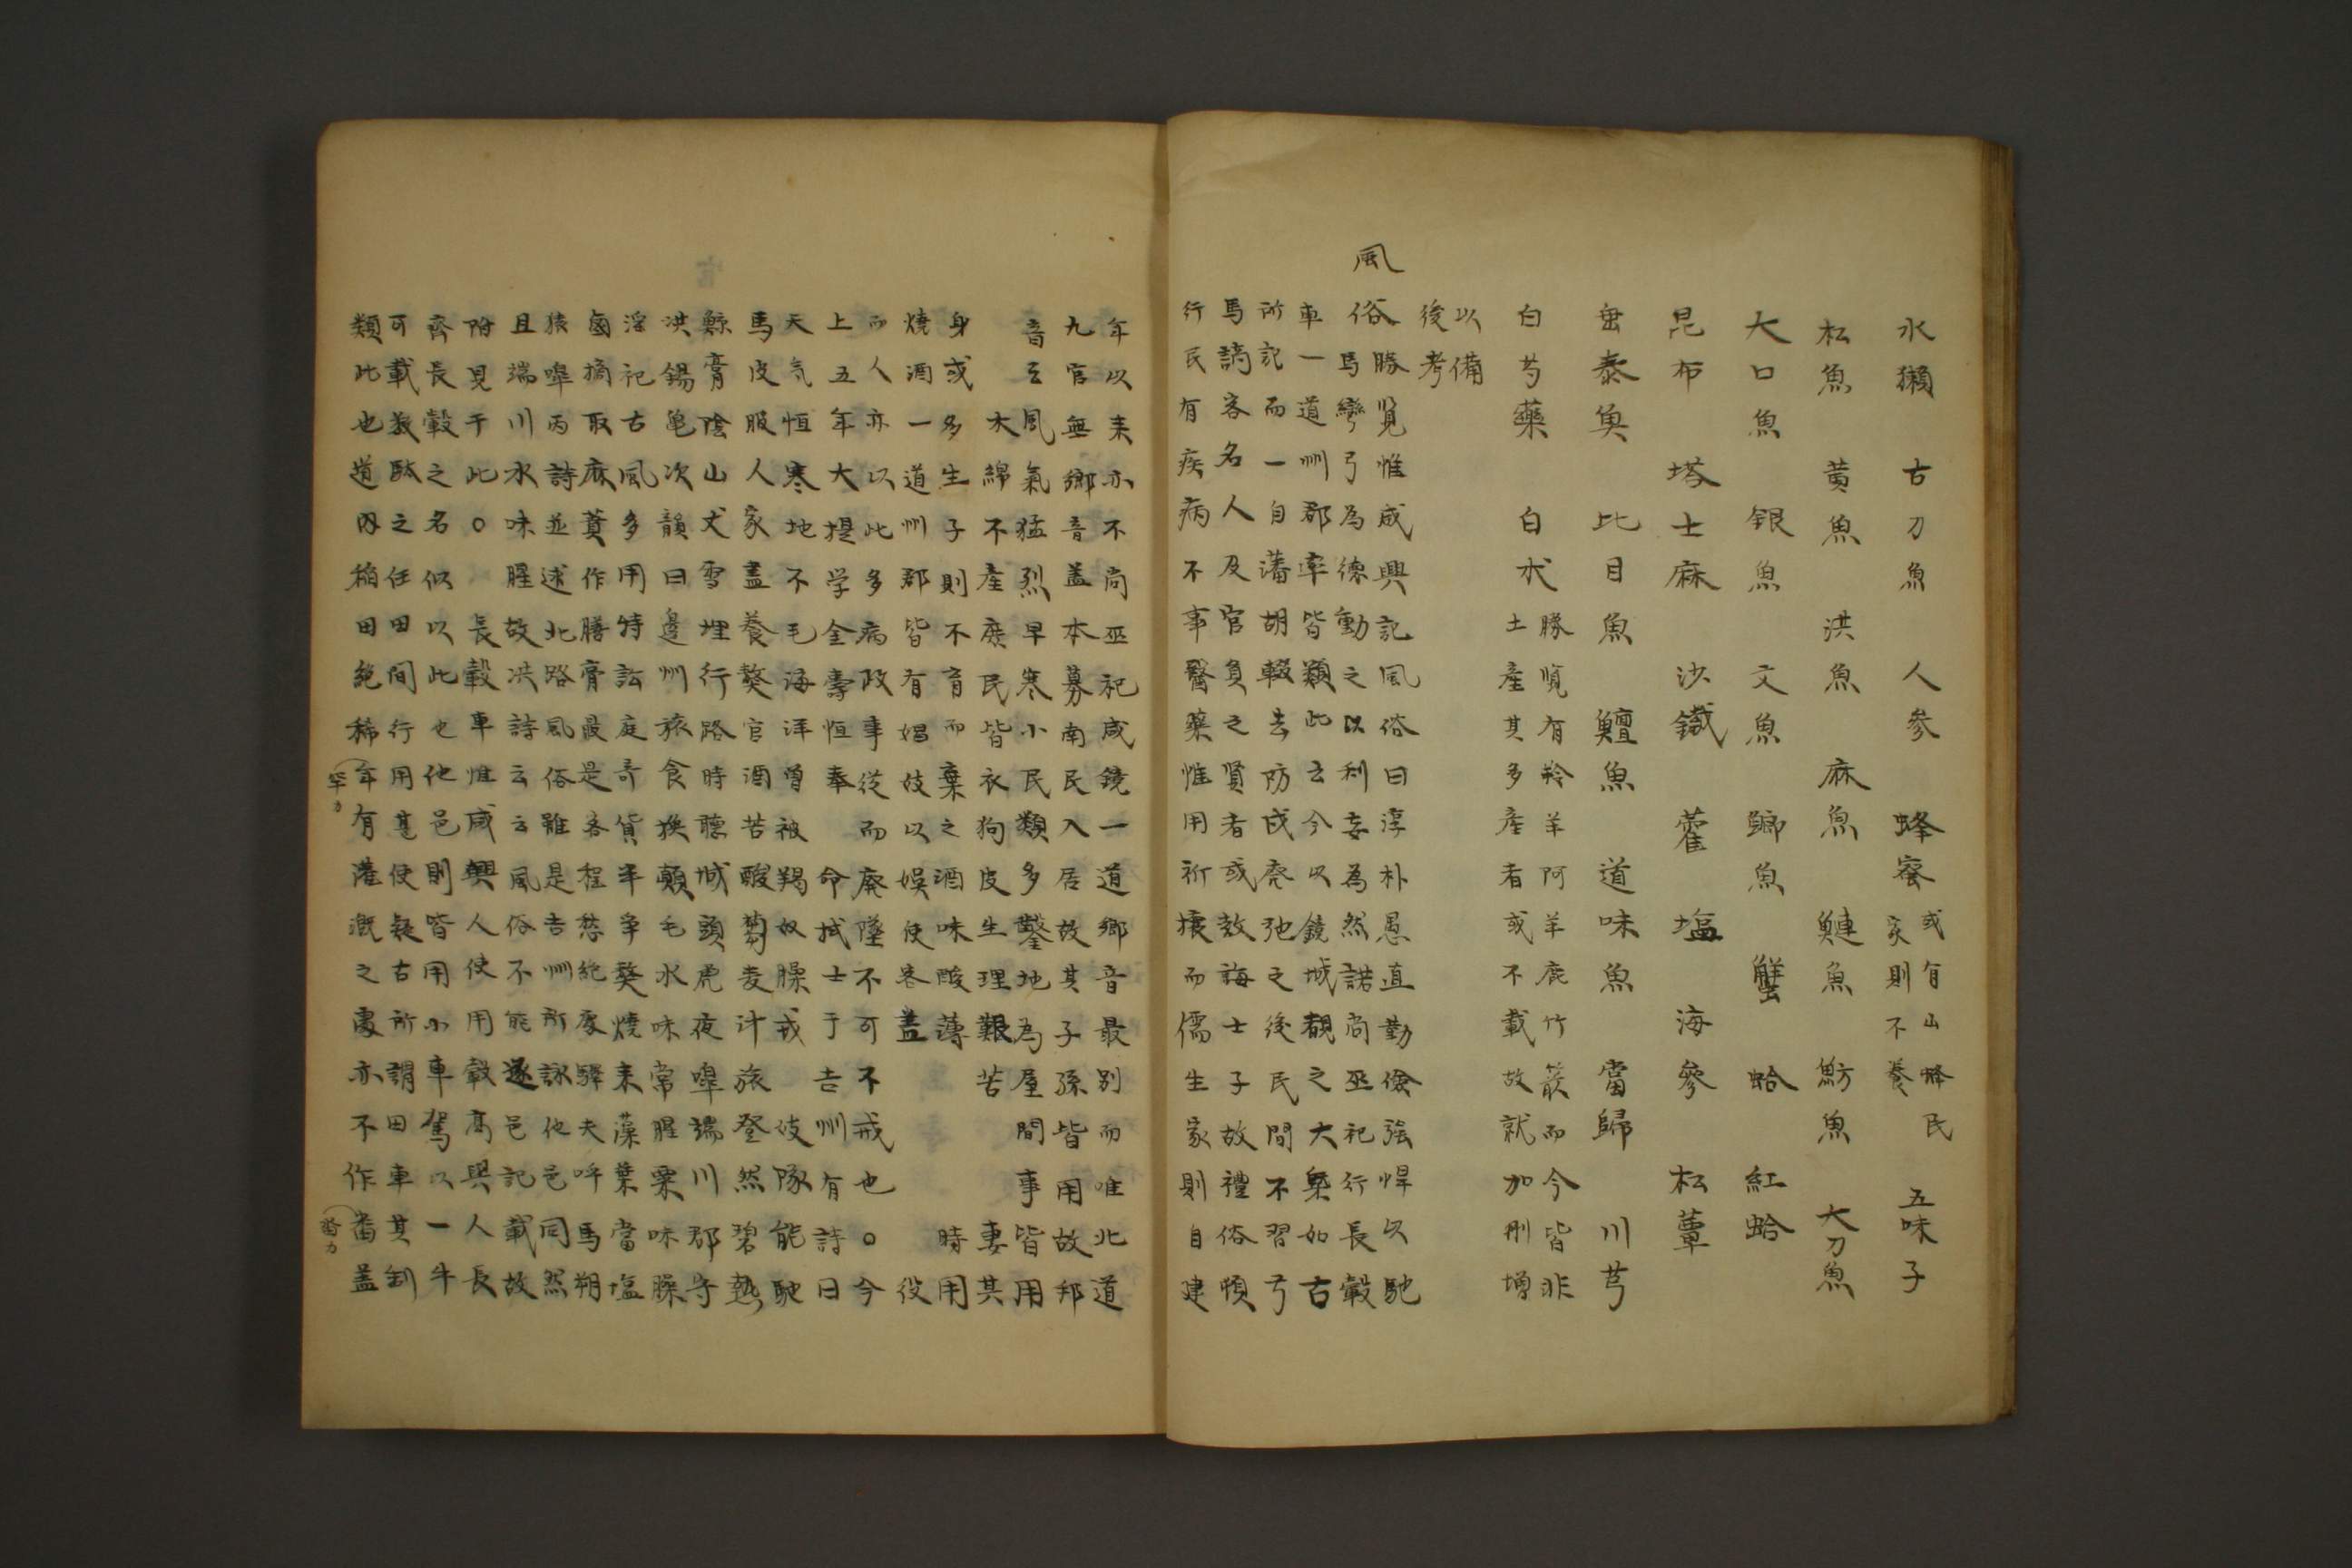 水獺 古刀魚 人參 蜂蜜 或有山蜂民家則不養 五味子
松魚 黃魚 洪魚 麻魚 鰱魚 魴魚 大刀魚
大口魚 銀魚 文魚 鯽魚 蟹 蛤 紅蛤
昆布 塔士麻 沙鐵 藿 塩 海參 松蕈
魚 比目魚 鱣魚 道味魚 當歸 川芎
白芍藥 白朮 勝覽有羚羊阿羊鹿竹箭而今皆非
土產其多產者或不載故就加刪增
以備
後考
風
俗 勝覽惟咸興記風俗曰淳朴愚直勤儉強悍以馳
馬彎弓為德動之以利妄為然諾尚巫祀行長轂
車一道州郡率皆類此云今以鏡城觀之大槩如古
所記而一自藩胡輟去防戍廃弛之後民間不習弓
馬謫客名人及官負之賢者或敎誨士子故禮俗頓
行民有疾病不事醫藥惟用祈壤而儒生家則自建
年以來亦不尚巫祀咸鏡一道鄉音最別而唯北道
九官無鄉音盖本募南民入居故其子孫皆用故邦
音云風氣猛烈早寒小民類多鑿地為屋間事皆用
木綿不產庶民皆衣狗皮生理艱苦 妻其
身或多生子則不育而棄之酒味酸薄 時用
燒酒一道州郡皆有娼妓以娛使客盖 役
而人亦以此多病政事從而廢墜不可不戒也○今
上五年大提学金壽恒奉 命拭士于吉州有詩曰
天气恒寒地不毛海洋曾被羯奴臊戎 妓隊能馳
馬皮服人家盡養獒官酒苦酸蒭麦汁旅登然碧熱
鯨膏陰山犬雪埋行路時聽城頭虎夜嘷端川郡守
洪錫亀次韻曰邊州旅食換顛毛水味常腥粟味臊
淫祀古風多用特訟庭奇貨半爭獒燒來藻葉當塩
鹵摘取麻蕡作膳膏最是客程愁絶處驛夫呼馬朔
猿嘷丙詩並述北路風俗雖是吉州所詠他邑同然
且端川水味腥故洪詩云云風俗不能逐邑記載故
附見于此○ 長轂車惟咸興人使用轂高與人長
齊長轂之名似以此也他邑則皆用小車駕以一牛
可載數駄之任田間行用甚便疑古所謂田車其制
類此也道內稻田絶稀年有灌漑之處亦不作畓盖